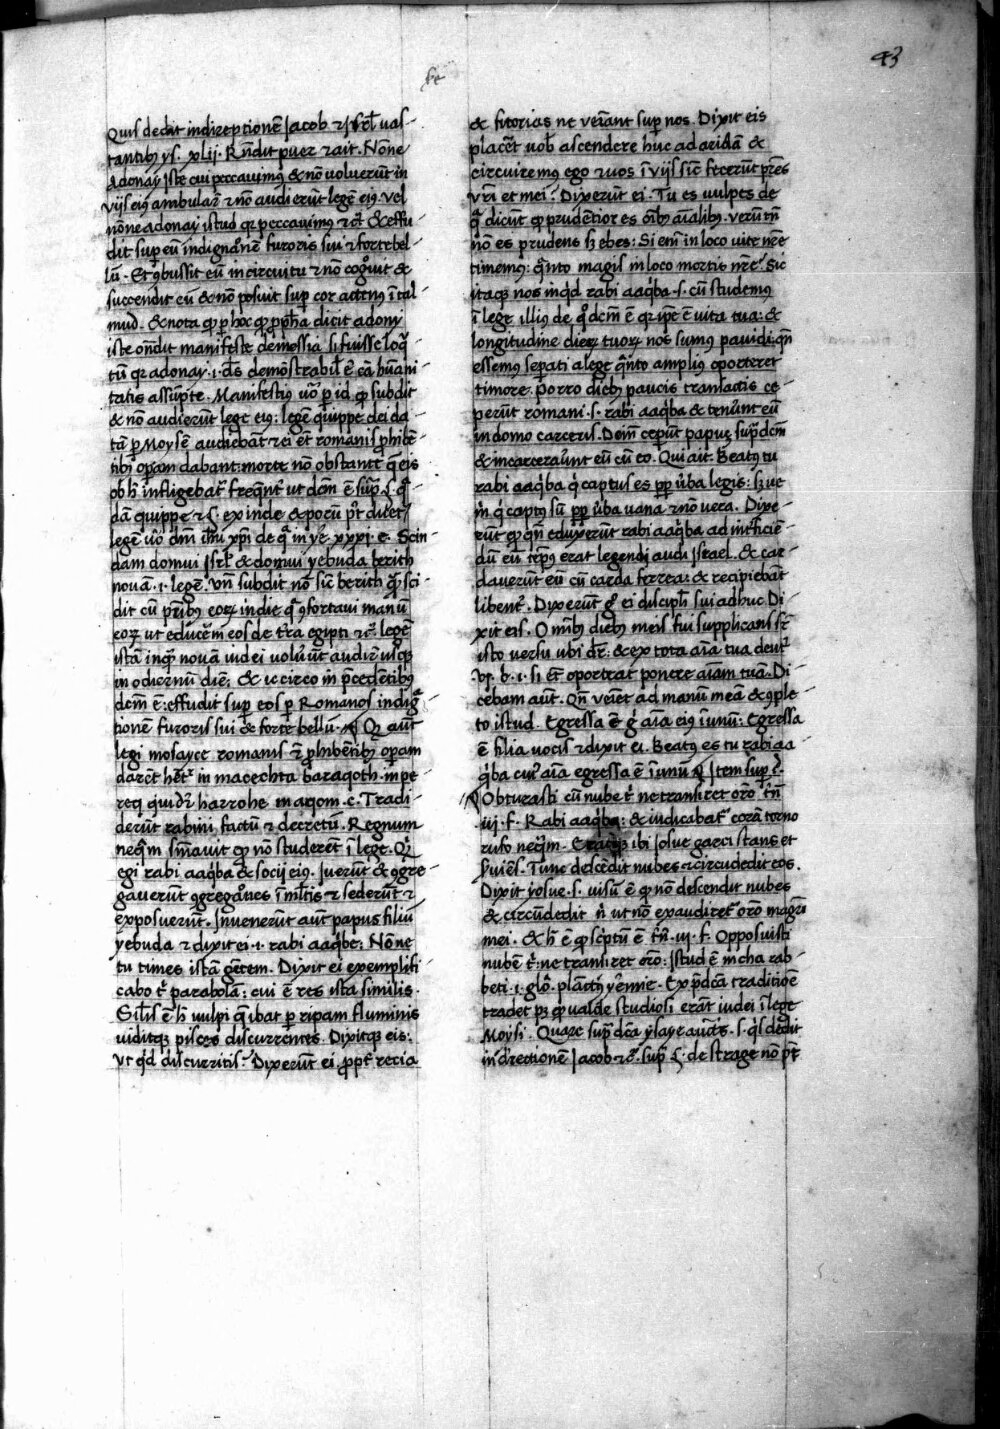 43
Quis dedit in direptionē Jacob & isrl̄ uas-
tantibꝰ ys. xlij. Rn̄dit puer & ait. Nōne
Adonay iste cui peccauimꝰ & nō voluerūt in
vijs eiꝰ ambular̄ & nō audierūt legē eiꝰ. vel
nōne adonay istud qr peccauimꝰ & cͭ. & effu-
dit sup̱ eū indignōnē furoris sui & forte bel-
lū. Et ꝯbussit eū in circuitu & nō cogͦuit &
succendit eū & nō posuit sup̱ cor actenꝰ ī tal-
mud. & nota qp̱ p̱ hͦc qp̱ pp̄ha dicit adony
iste on̄dit manifeste de messia si fuisse loq̄-
tū qr adonay .i. dēs demōstrabil̄ ē cā hūani-
tatis assūpte. Manifestiꝰ ūo p̱ id qp̱ subdit
& nō audierūt lege eiꝰ: legē quippe dei da-
tā p̱ Moysē audiebāt & ei et̄ romanis p̱hibē-
tibꝰ op̱am dabant: morte nō obstante q̄ eis
ob h̄ infligebatʳ freqn̄tʳ ut dcm̄ ē sup̄. ς. q̄-
dā quippe
legē ūo dn̄i ih̄u xp̄i de q̄ in yeʳ. xxxi. c. Scin-
dam domui isrl̄ & domui yebuda berith
nouā .i. legē. Vn̄ subdit nō sic̄ berith q̄ sci-
dit cū pr̄ibꝰ eoꝝ in die q̄ ꝯfortaui manū
eoꝝ ut educēm eos de tr̄a egipti & cͭ. legē
istā inq̄ nouā iudei noluer̄t audir̄ usqꝫ
in odiernū diē: & iccirco in p̄cedētibꝰ
dcm̄ ē: effudit sup̱ eos p̱ Romanos indiga-
tionē furoris sui & forte bellū. Qꝫ aūt
legi mosayce romanis & p̱hibētibꝰ op̱am
darēt hētʳ in macechta baraqoth. in pe-
req qui dʳ harrohe maqom .c. Tradi-
derūt rabini factū & decretū. Regnum
neq̄m sm̄auit qp̱ nō studerēt ī lege. Qꝫ
egi rabi aaq̄ba & socij eiꝰ. Iuerūt & ꝯgre-
gauerūt ꝯgregatōnes ī ml̄tis & sederūt &
exposuerūt. Inuenerūt aūt papus filiū
yebuda & dixit ei .i. rabi aaq̄be: Nōne
tu times istā gētem. Dixit ei exemplifi-
cabo tʳ parabolā: cui ē res ista similis.
Silis ē h̄ uulpi q̄ ibat p̱ ripam fluminis
uiditqꝫ pisces discurrentes. Dixitqꝫ eis:
Vt qd̄ discurritis? Dixerūt ei p̱ptʳ recia
& sitorias ne veīant sup̱ nos. Dixit eis
placet uob̄ ascendere huc ad aridā &
circuiremꝰ ego & uos ī vijs sic̄ fecerūt pr̄es
vr̄i et mei? Dixerūt ei. Tu es uulpes de
q̄ dicūt qp̱ prudentior es oībꝰ aīalibꝰ. verūtn̄
nō es prudens sꝫ ebes: Si em̄ in loco uite nr̄e
timemꝰ: q̄nto magis in loco mortis nr̄e? Sic
itaqꝫ nos inqd̄ rabi aaq̄ba .s. cū studemꝰ
ī lege illiꝰ de qͦ dcm̄ ē qr ip̄e ē uita tua: &
longitudine dieꝝ tuoꝝ nos sumꝰ pauidi: qn̄
essemꝰ sep̱ati a lege q̄nto ampliꝰ oporteret
timore. Porro diebꝰ paucis transactis ce-
perūt romani .s. rabi aaq̄ba & tenuer̄t eū
in domo carceris. Dein̄ cepūt papuꝫ sup̄dcm̄
& incarcerauer̄t eū cū eo. Qui ait. Beatꝰ tu
rabi aaq̄ba q̄ captus es pp̱ ūba legis: sꝫ ue
m̄ q̄ captꝰ sū pp̱ ūba uana & nō vera. Dixe-
rūt qp̱ qn̄ eduxerūt rabi aaq̄ba ad int̄ficiē-
dū eū temp̱ꝰ erat legendi audi Israel. & car-
dauerūt eū cū carda ferrea: & recipiebāt
libentʳ. Dixerūt gͦ ei discip̱li sui adhuc. Di-
xit eis. Omībꝰ diebꝰ meis fui supplicans sr̄
isto versu ubi dʳ: & ex tota aīa tua deutʳ
vj. b. .i. si et̄ oporteat ponere aīam tuā. Di-
cebam aūt. Qn̄ veīet ad manū meā & ꝯple-
to istud. Egressa ē gͦ aīa eiꝰ ī unū: Egressa
ē filia uocis & dixit ei. Beatꝰ es tu rabi aa-
q̄ba cuiꝰ aīa egressa ē ī unū. Item sup̱
Obturasti cū nube tʳ ne transiret orō. trn̄
iij. f. Rabi aaq̄ba: & iudicabatʳ corā torno
rufo neq̄m. ibi Iosue garci stans et
s̄uiēs. Tunc descēdit nubes & circūdedit eos.
Dixit yosue .s. uisū ē qp̱ nō descendit nubes
& circūdedit nͥ ut nō exaudiretʳ orō magrī
mei. & h̄ ē qp̱ sc̄ptū ē trn̄. iij. f. Opposuisti
nubē tʳ: ne transiret orō: Istud ē in cha rab-
beti .i. glō. planctꝰ yermie. Ex p̄dc̄ā traditiōe
tradet pꝫ qp̱ ualde studiosi erāt iudei ī lege
Moysi. Quare sup̄dcā ysaye auc̄tas .s. qͥs dedit
in direptionē Jacob & cͭ. sup̱ ς. de strage nō pt̄